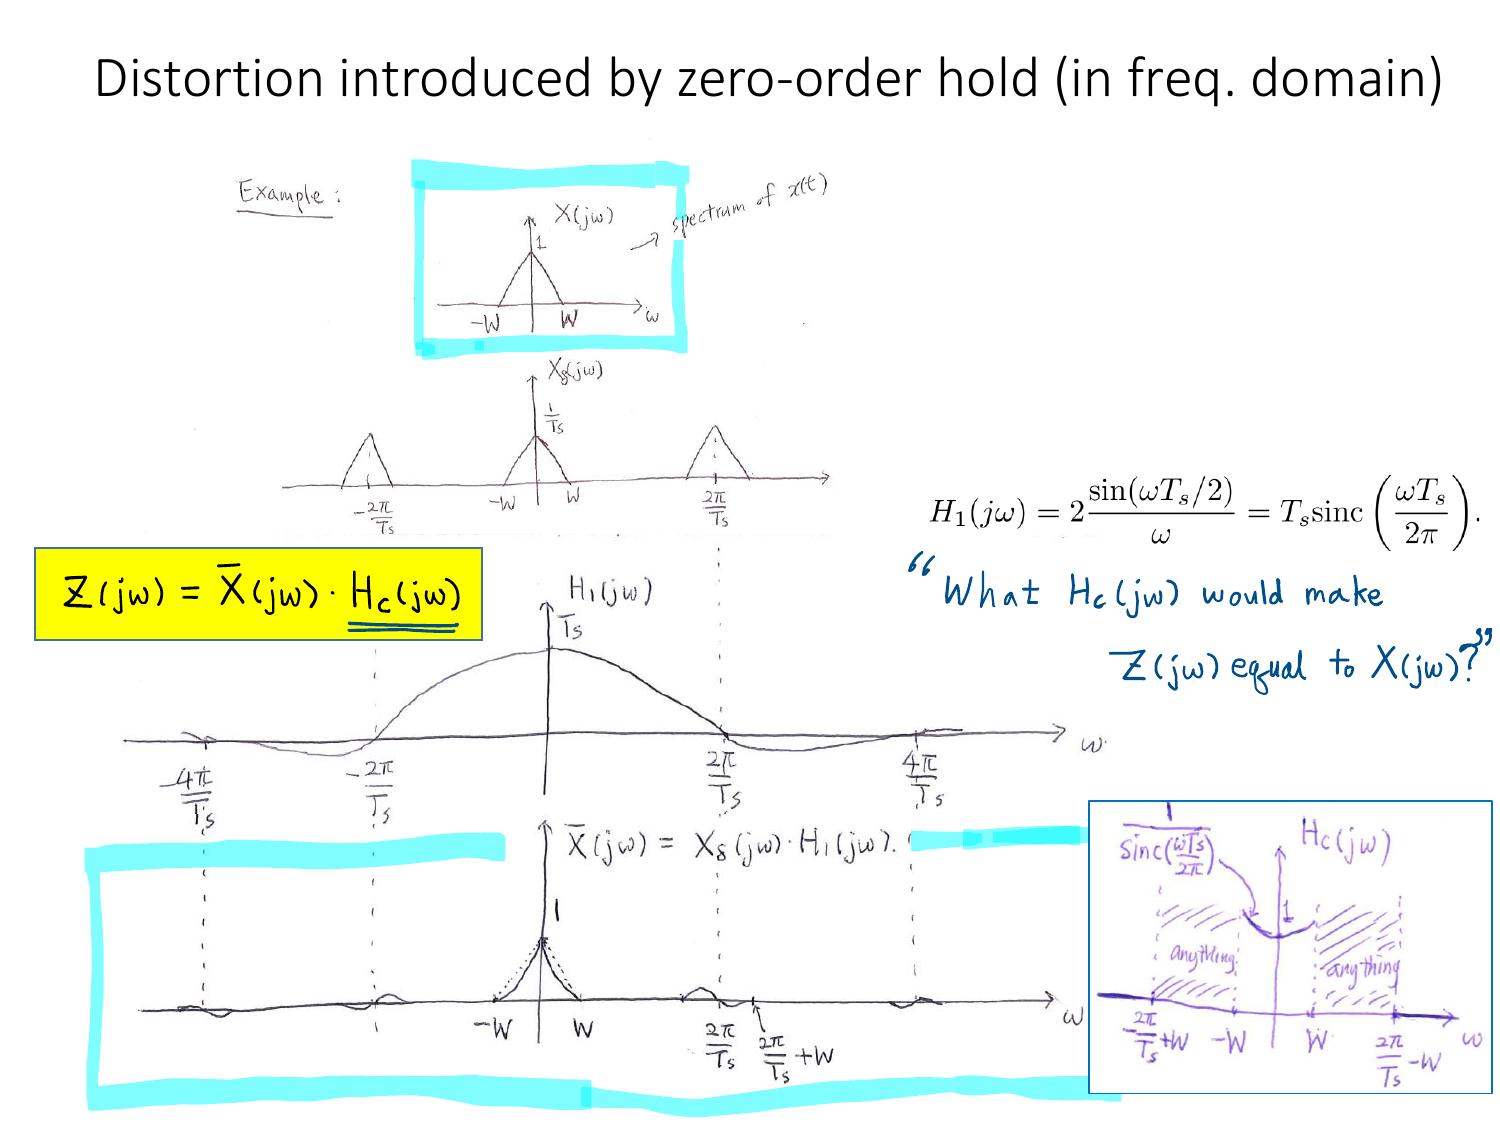 Distortion introduced by zero-order hold (in freq. domain)
Example :
X(jω)
→ spectrum of x(t)
1
-W W ω
Xδ(jω)
1/Ts
-2π/Ts -W W 2π/Ts
H₁(jω) = 2 sin(ωTs/2)/ω = Ts sinc(ωTs/2π).
Z(jω) = X̄(jω) · Hc(jω)
"What Hc(jω) would make
Z(jω) equal to X(jω)?"
H₁(jω)
Ts
ω
-4π/Ts -2π/Ts 2π/Ts 4π/Ts
X̄(jω) = Xδ(jω)·H₁(jω).
1
-W W 2π/Ts 2π/Ts +W ω
1/sinc(ωTs/2π)
Hc(jω)
1
anything anything
-2π/Ts +W -W W 2π/Ts -W ω